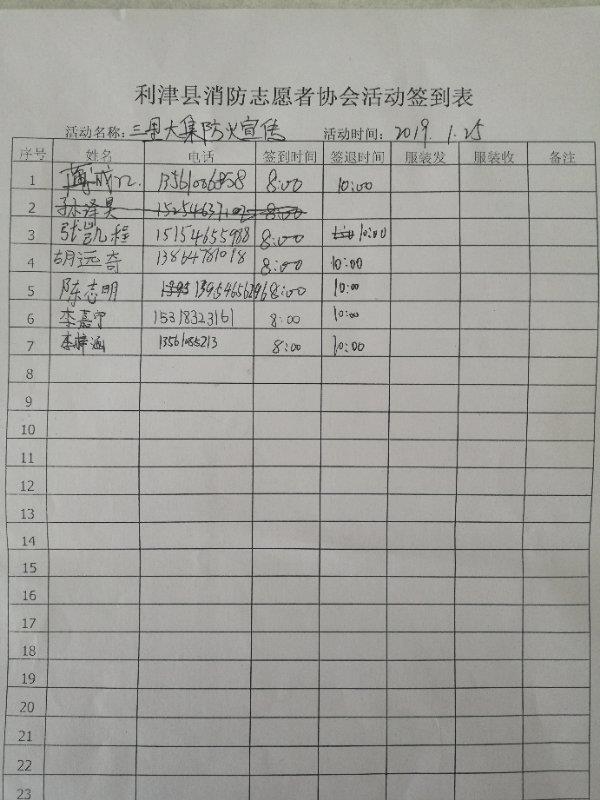 利津县消防志愿者协会活动签到表
活动名称：三里大集防火宣传 活动时间：2019.1.25
序号 姓名 电话 签到时间 签退时间 服装发 服装收 备注
1 8:00 10:00
2 孙泽昊 8:00
3 张凯程 15154655988 8:00 10:00
4 胡远奇 13864781018 8:00 10:00
5 陈志明 8:00 10:00
6 李嘉宁 15318323161 8:00 10:00
7 李梓涵 13561085213 8:00 10:00
8
9
10
11
12
13
14
15
16
17
18
19
20
21
22
23